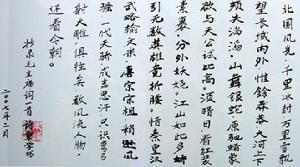 北国风光，千里冰封，万里雪飘。
望长城内外，惟馀莽莽，大河上下，
顿失滔滔。山舞银蛇，原驰蜡象，
欲与天公试比高。须晴日，看红装
素裹，分外妖娆。江山如此多娇，
引无数英雄竞折腰。惜秦皇汉
武，略输文采，唐宗宋祖，稍逊风
骚。一代天骄，成吉思汗，只识弯弓
射大雕。俱往矣，数风流人物，
还看今朝。
抄录毛主席词一首
二〇〇七年三月